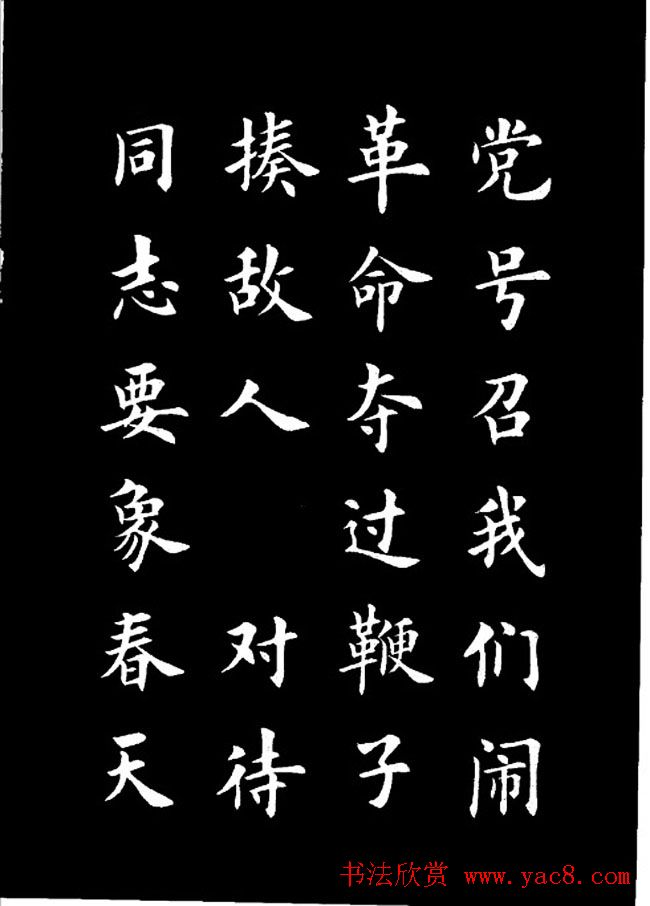 党号召我们闹
革命夺过鞭子
揍敌人 对待
同志要象春天
书法欣赏 www.yac8.com